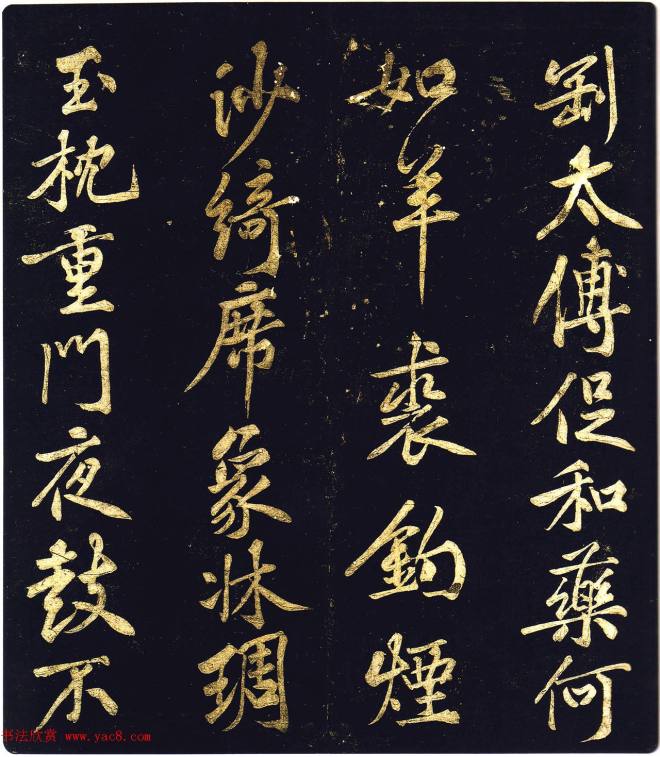 剛太傅促和藥何
如羊裘釣煙
沙綺席象牀琱
玉枕重門夜鼓不
书法欣赏 www.yac8.com